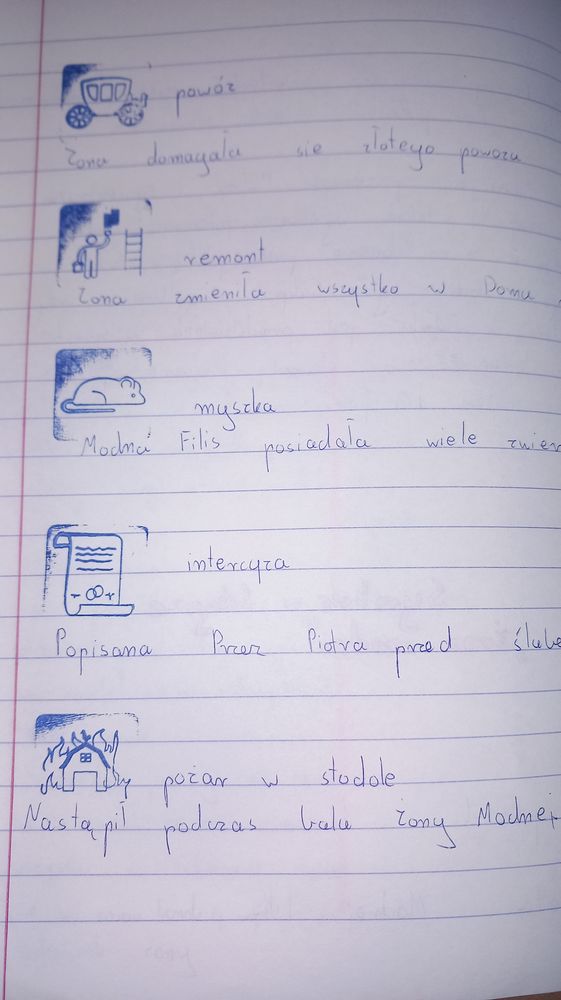 powóz
Żona domagała sie złotego powozu
remont
Żona zmieniła wszystko w Domu
myszka
Modna Filis posiadała wiele zwier
intercyza
Popisana Przez Piotra przed ślube
pożar w stodole
Nastąpił podczas balu żony Modnej